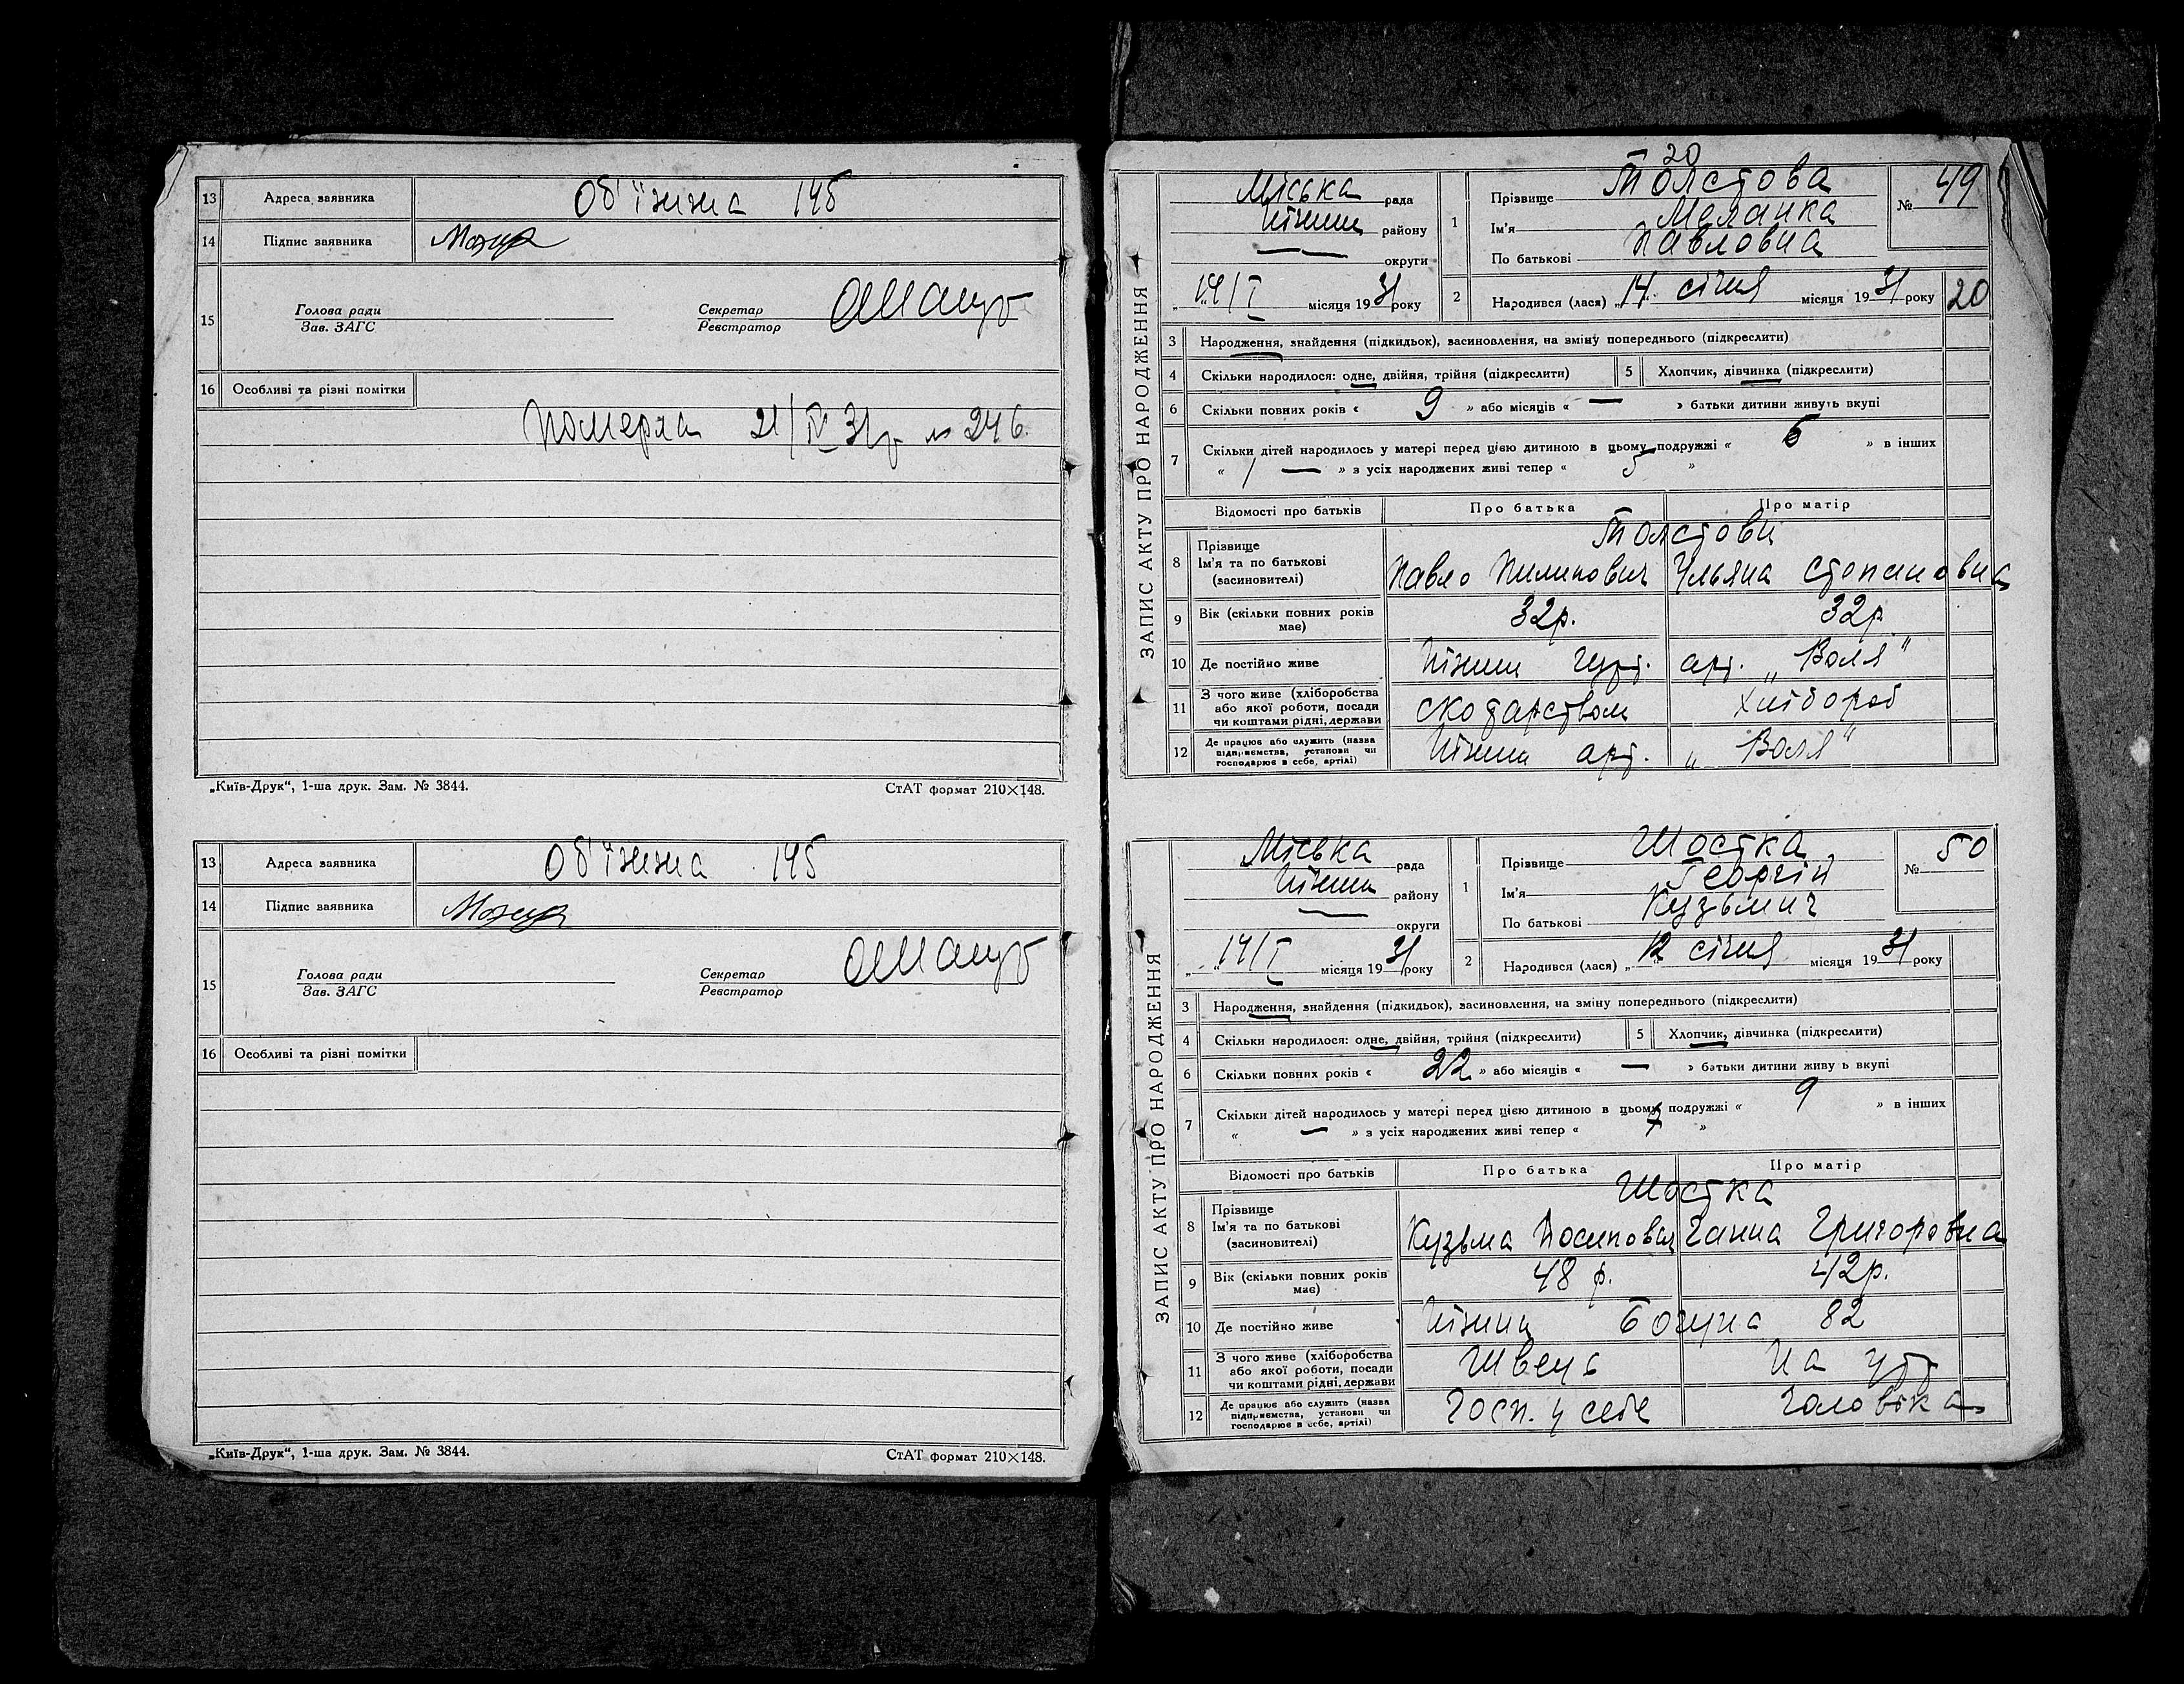 13 Адреса заявника Об'їзжа 145
14 Підпис заявника
15 Голова ради
Зав. ЗАГС
Секретар
Реєстратор
16 Особливі та різні помітки
Померла 21/IV 31р № 246
„Київ-Друк“, 1-ша друк. Зам. № 3844. СтАТ формат 210×148.
13 Адреса заявника Об'їзжа 145
14 Підпис заявника
15 Голова ради
Зав. ЗАГС
Секретар
Реєстратор
16 Особливі та різні помітки
„Київ-Друк“, 1-ша друк. Зам. № 3844. СтАТ формат 210×148.
20
ЗАПИС АКТУ ПРО НАРОДЖЕННЯ
Міська рада
Ніжин району
— округи
„14/I місяця 1931 року
1 Прізвище Толстова
Ім'я Меланка
По батькові Павловна
№ 49
2 Народився (лася) „14“ січня місяця 1931 року
20
3 Народження, знайдення (підкидьок), засиновлення, на зміну попереднього (підкреслити)
4 Скільки народилося: одне, двійня, трійня (підкреслити)
5 Хлопчик, дівчинка (підкреслити)
6 Скільки повних років « 9 » або місяців « — » батьки дитини живуть вкупі
7 Скільки дітей народилось у матері перед цією дитиною в цьому подружжі « 6 » в інших
« 1 — » з усіх народжених живі тепер « 5 »
Відомості про батьків Про батька Про матір
8 Прізвище
Ім'я та по батькові
(засиновителі)
Толстови
Павло Пилипович Ульяна Степановна
9 Вік (скільки повних років має) 32р. 32р
10 Де постійно живе Ніжин гурт. арт. „Воля“
11 З чого живе (хліборобства
або якої роботи, посади
чи коштами рідні, держави
скотарством Хлібороб
12 Де працює або служить (назва
підприємства, установи чи
господарює в себе, артілі)
Ніжин арт. „Воля“
ЗАПИС АКТУ ПРО НАРОДЖЕННЯ
Міська рада
Ніжин району
— округи
„14/I місяця 1931 року
1 Прізвище Шостка
Ім'я Георгій
По батькові Кузьмич
№ 50
2 Народився (лася) „12“ січня місяця 1931 року
3 Народження, знайдення (підкидьок), засиновлення, на зміну попереднього (підкреслити)
4 Скільки народилося: одне, двійня, трійня (підкреслити)
5 Хлопчик, дівчинка (підкреслити)
6 Скільки повних років « 22 » або місяців « — » батьки дитини живу ь вкупі
7 Скільки дітей народилось у матері перед цією дитиною в цьому подружжі « 9 » в інших
« — » з усіх народжених живі тепер « 7 »
Відомості про батьків Про батька Про матір
8 Прізвище
Ім'я та по батькові
(засиновителі)
Шостка
Кузьма Йосипович Ганна Григоровна
9 Вік (скільки повних років має) 48 р. 42р.
10 Де постійно живе Ніжин Богуна 82
11 З чого живе (хліборобства
або якої роботи, посади
чи коштами рідні, держави
Швець На утр
12 Де працює або служить (назва
підприємства, установи чи
господарює в себе, артілі)
Госп. у себе Чоловіка